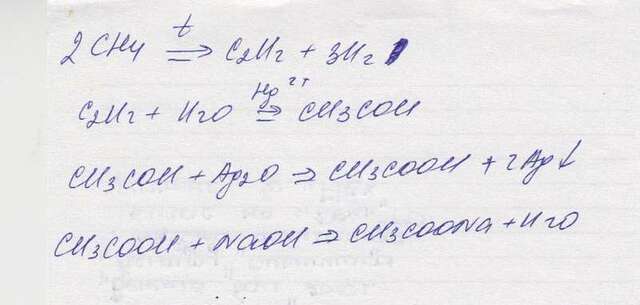 2CH4 t => C2H2 + 3H2
C2H2 + H2O Hg2+ => CH3COH
CH3COH + Ag2O => CH3COOH + 2Ag↓
CH3COOH + NaOH => CH3COONa + H2O